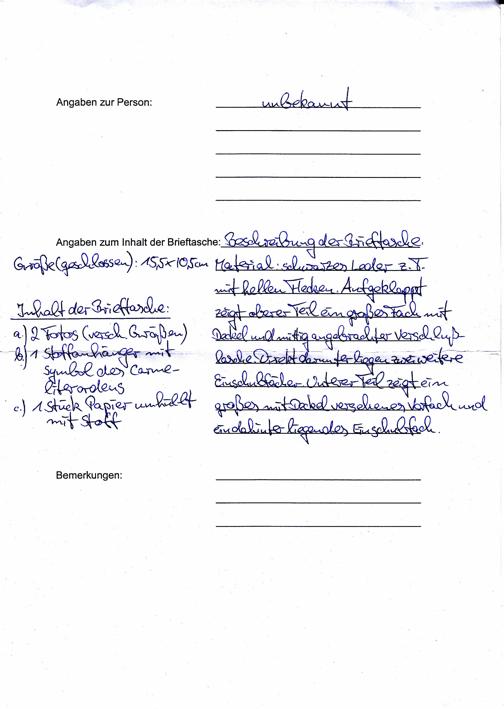 Angaben zur Person: unbekannt
Angaben zum Inhalt der Brieftasche: Beschreibung der Brieftasche.
Größe (geschlossen): 15,5x10,5cm Material: schwarzes Leder z.T.
mit hellen Flecken. Aufgeklappt
zeigt oberer Teil ein großes Fach mit
Deckel und mittig angebrachter Verschluß-
lasche. Direkt darunter liegen zwei weitere
Einschubfächer. Unterer Teil zeigt ein
großes mit Deckel versehenes Vorfach und
ein dahinter liegendes Einschubfach.
Inhalt der Brieftasche:
a) 2 Fotos (versch. Größen)
b) 1 Stoffanhänger mit
Symbol des Carme-
literordens
c.) 1 Stück Papier umhüllt
mit Stoff
Bemerkungen: